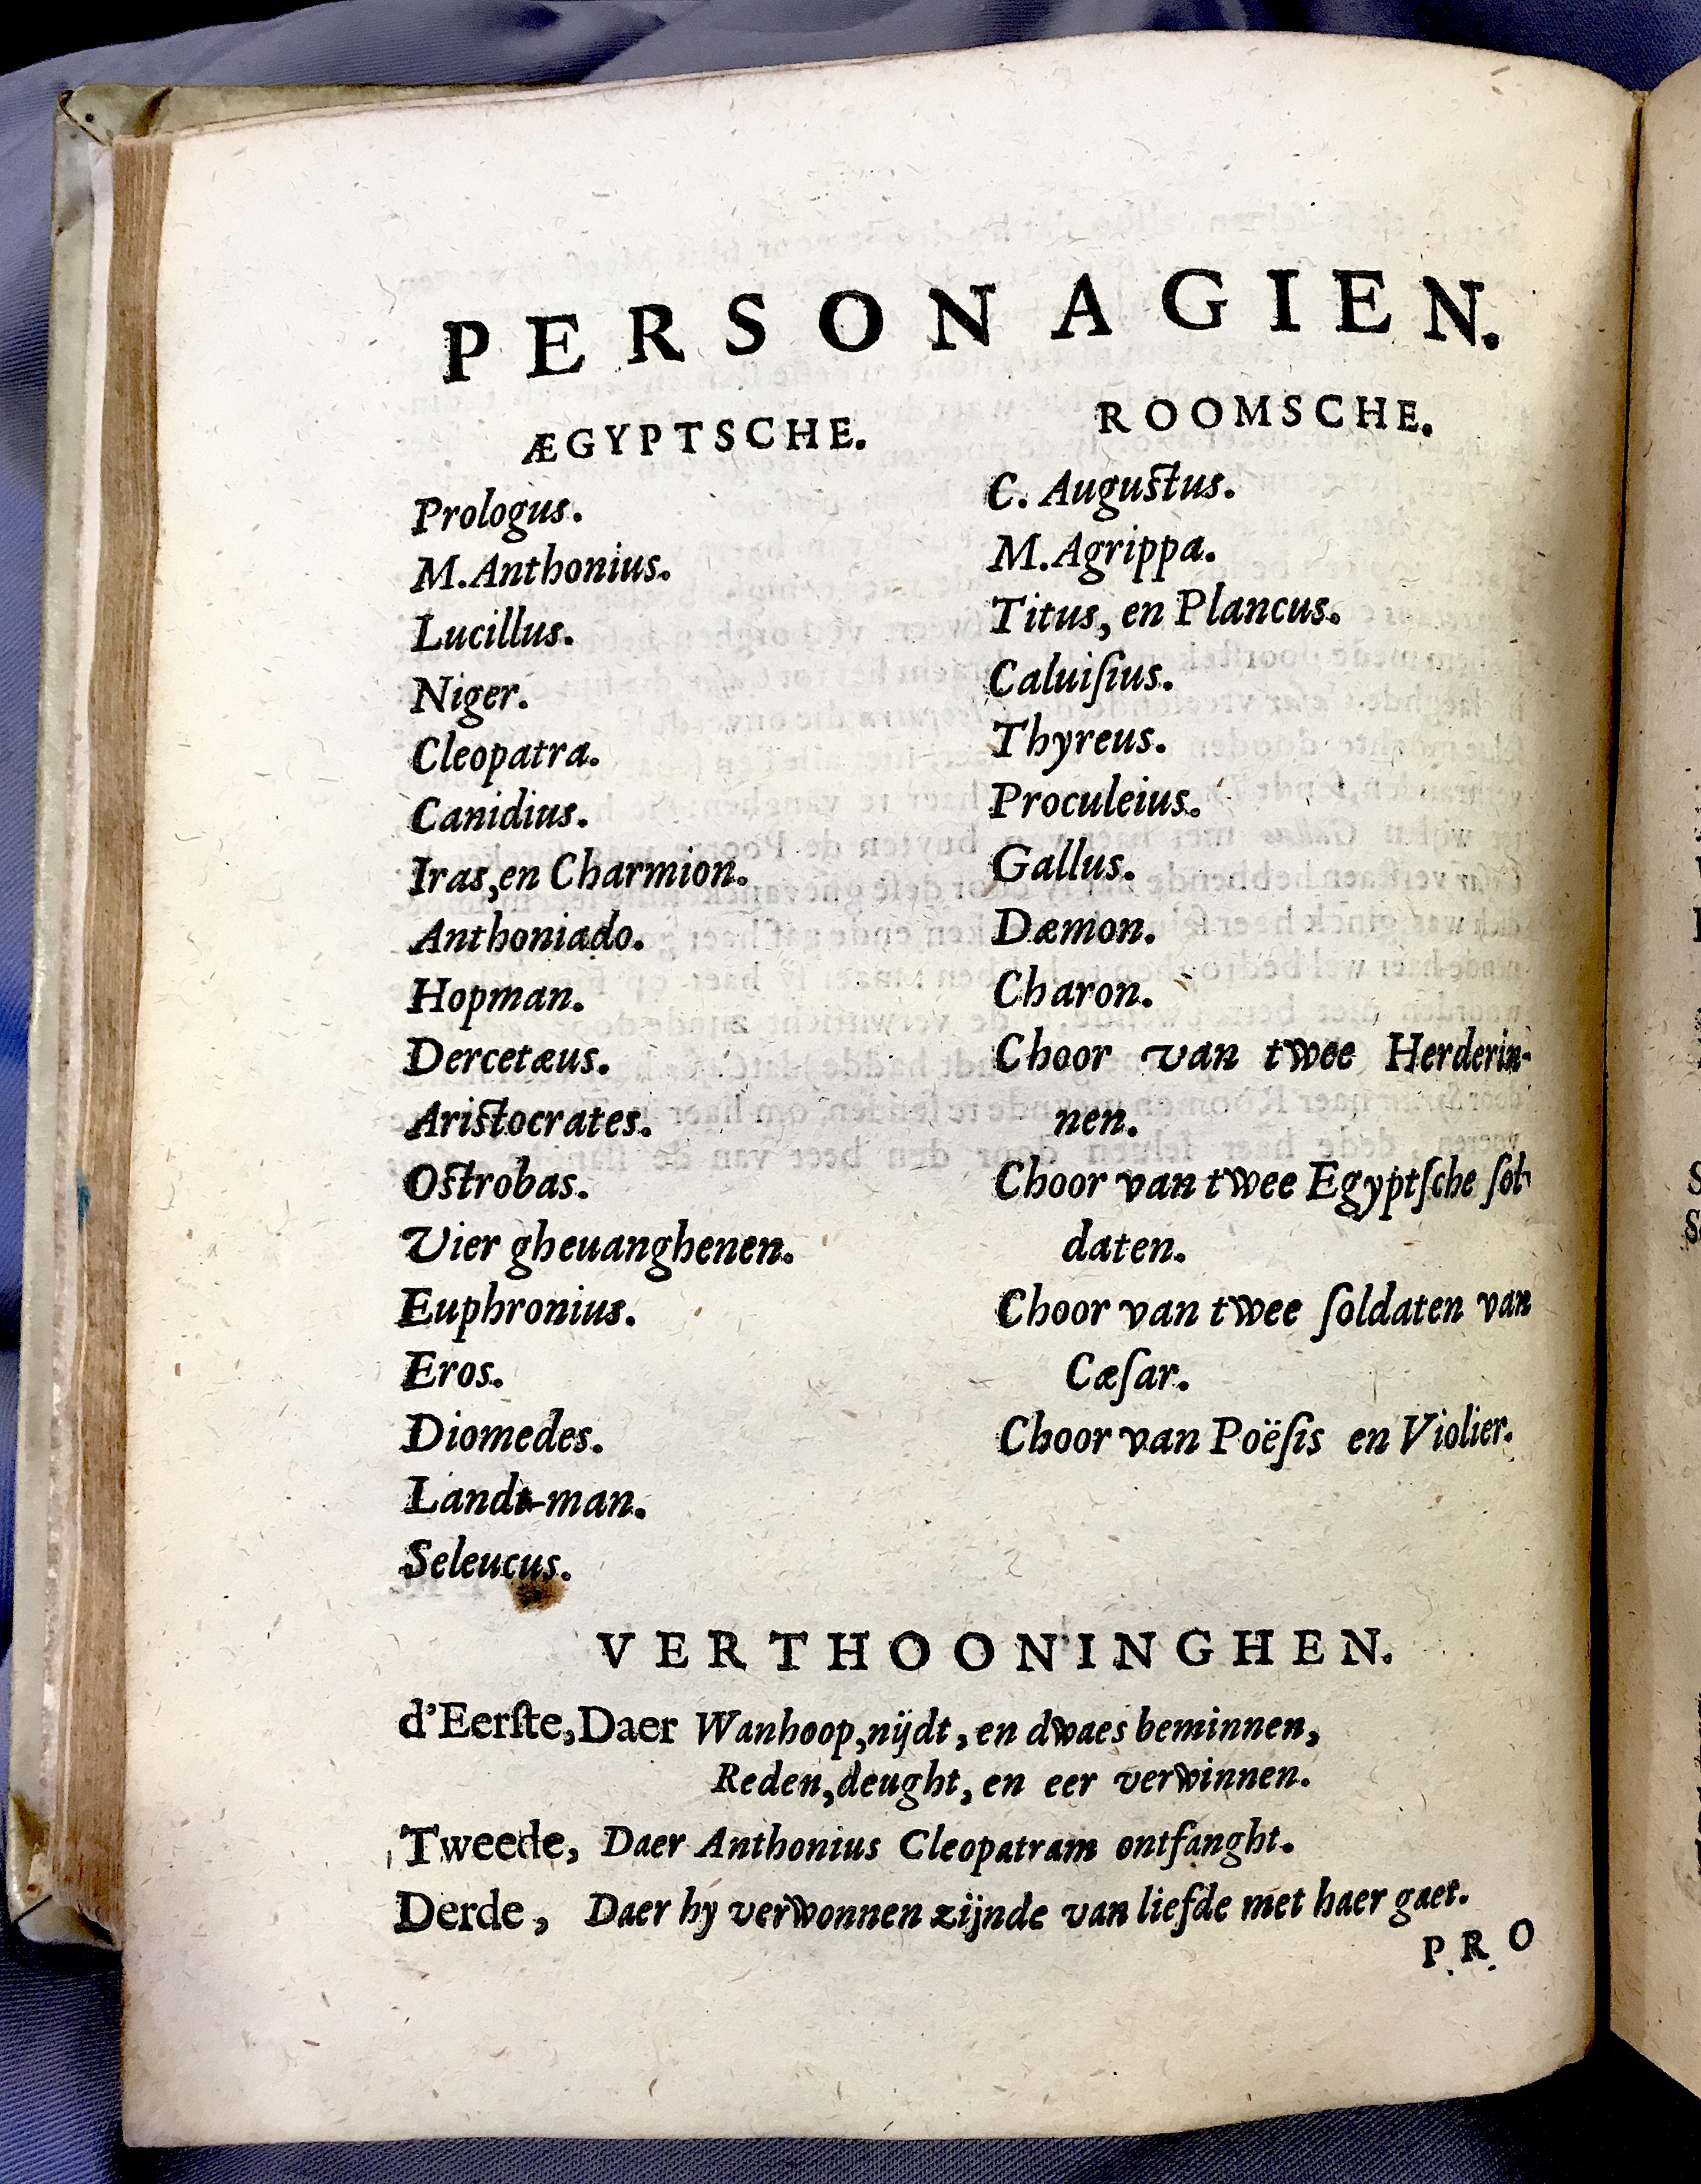 PERSONAGIEN.
ÆGYPTSCHE.
Prologus.
M. Anthonius.
Lucillus.
Niger.
Cleopatra.
Canidius.
Iras, en Charmion.
Anthoniado.
Hopman.
Dercetæus.
Aristocrates.
Ostrobas.
Vier gheuanghenen.
Euphronius.
Eros.
Diomedes.
Landt-man.
Seleucus.
ROOMSCHE.
C. Augustus.
M. Agrippa.
Titus, en Plancus.
Caluiſius.
Thyreus.
Proculeius.
Gallus.
Dæmon.
Charon.
Choor van twee Herderin-
nen.
Choor van twee Egyptſche ſol-
daten.
Choor van twee ſoldaten van
Cæſar.
Choor van Poëſis en Violier.
VERTHOONINGHEN.
d'Eerſte, Daer Wanhoop, nijdt, en dwaes beminnen,
Reden, deught, en eer verwinnen.
Tweede, Daer Anthonius Cleopatram ontfanght.
Derde, Daer hy verwonnen zijnde van liefde met haer gaet.
PRO